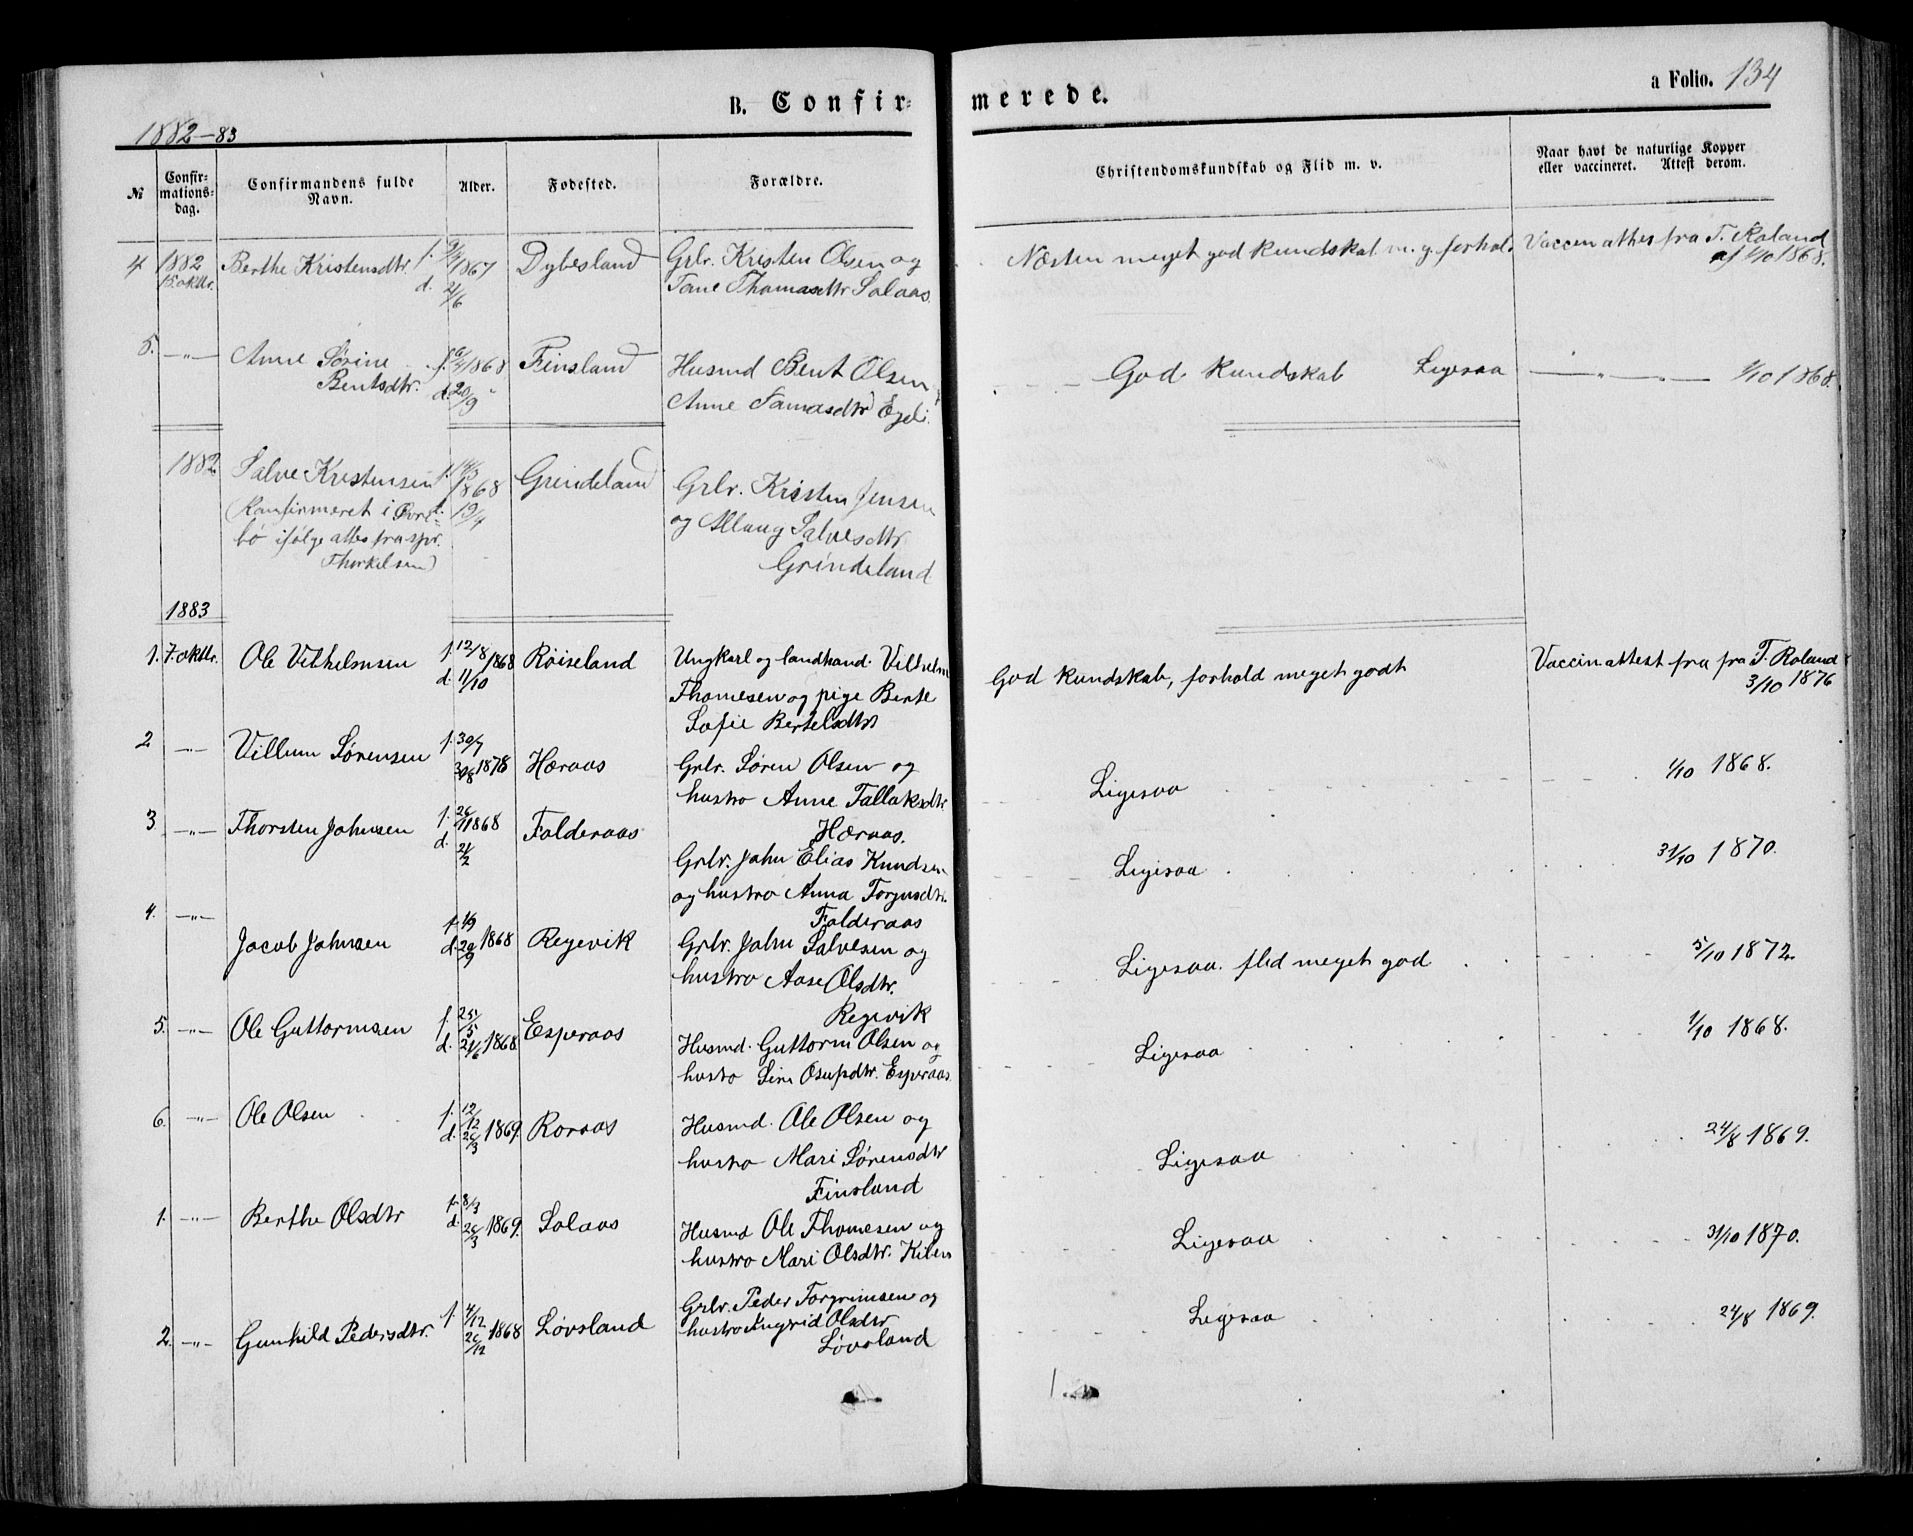 B. Confir-
merede.
a Folio. 134
1882-83
№
Confir-
mations-
dag.
Confirmandens fulde
Navn.
Alder.
Fødested.
Forældre.
Christendomskundskab og Flid m. v.
Naar havt de naturlige Kopper
eller vaccineret. Attest derom.
4 1882 Berthe Kristensdtr. f. 9/4 1867 Dybesland Grbr. Kristen Olsen og Næsten meget god kundskab m. g. forhold Vaccin attest fra T. Roland
15. oktbr. d. 21/6 Tone Thomasdtr Solaas. af 1/10 1868.
5. —"— Anne Sørine f. 6/4 1868 Finsland Husmd Bent Olsen God kundskab Ligesaa —"— 1/10 1868.
Bentsdtr. d. 20/9 Anne Samasdtr Egeli.
1882 Salve Kristensen f. 14/3 1868 Grindeland Grbr. Kristen Jensen
(Konfirmeret i Øvre- 19/4 og Allaug Salvesdtr
bø ifølge attes fra spr. Grindeland
Thorkelsen)
1883
1. 7. oktbr. Ole Vilhelmsen f. 12/8 1868 Røiseland Ungkarl og landhand. Vilhelm God kundskab, forhold meget godt Vaccin attest fra fra T. Roland
d. 11/10 Thomesen og pige Berte 3/10 1876
Sofie Bertelsdtr
2 —"— Villum Sørensen f. 30/7 Hæraas Grbr. Søren Olsen og Ligesaa 1/10 1868.
30/8 1878 hustro Anne Tallaksdtr
Hæraas.
3. —"— Thorsten Johnsen f. 26/1 1868 Folderaas Grbr. John Elias Knudsen Ligesaa 31/10 1870.
d. 21/2 og hustro Anna Torjusdtr.
Folderaas
4. —"— Jacob Johnsen f. 1/9 Regevik Grbr. John Salvesen og Ligesaa. flid meget god 5/10 1872.
d. 20/9 1868 hustro Aase Olsdtr.
Regevik
5. —"— Ole Guttormsen f. 25/5 Esperaas Husmd. Guttorm Olsen og Ligesaa 1/10 1868.
d. 21/6 1868. hustro Sine Osupdtr. Esperaas.
6. —"— Ole Olsen f. 12/12 Roraas Husmd. Ole Olsen og Ligesaa 24/8 1869.
d. 26/3 1869. hustro Mari Sørensdtr
Finsland
1. —"— Berthe Olsdtr f. 8/3 Solaas Husmd Ole Thomesen og Ligesaa 31/10 1870.
d. 26/3 1869. hustro Mari Olsdtr. Kilen
2. —"— Gunhild Pedersdtr. f. 4/12 1868 Løvsland Grbr. Peder Torgrimsen og Ligesaa 24/8 1869.
26/12 hustro Ingrid Olsdtr
Løvsland